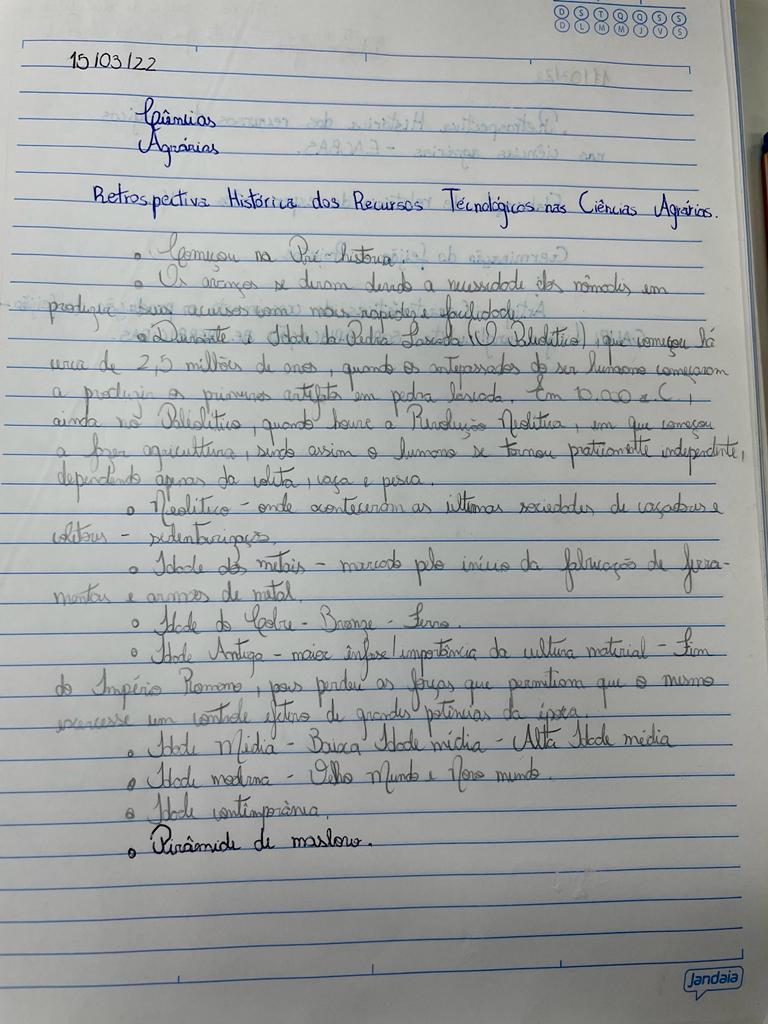 D S T Q Q S S
D L M M J V S
15/03/22
Ciências
Agrárias
Retrospectiva Histórica dos Recursos Técnológicos nas Ciências Agrárias.
• Começou na Pré-história.
• Os avanços se deram devido a necessidade dos nômades em
produzir seus recursos com mais rapidez e facilidade.
• Durante a Idade da Pedra Lascada (O Paleolítico), que começou há
cerca de 2,5 milhões de anos, quando os antepassados do ser humano começaram
a produzir os primeiros artefatos em pedra lascada. Em 10.000 a.C,
ainda no Paleolítico, quando houve a Revolução Neolítica, em que começou
a fazer agricultura, sendo assim o humano se tornou praticamente independente,
dependendo apenas da coleta, caça e pesca.
• Neolítico - onde aconteceram as últimas sociedades de caçadores e
coletores - sedentarização.
• Idade dos metais - marcado pelo início da fabricação de ferra-
mentas e armas de metal.
• Idade do Cobre - Bronze - Ferro.
• Idade Antiga - maior ênfase/importância da cultura material - Fim
do Império Romano, pois perdeu as forças que permitiam que o mesmo
exercesse um controle efetivo de grandes potências da época.
• Idade Média - Baixa Idade média - Alta Idade média
• Idade moderna - Velho Mundo e Novo mundo.
• Idade contemporânea.
• Pirâmide de maslow.
Jandaia